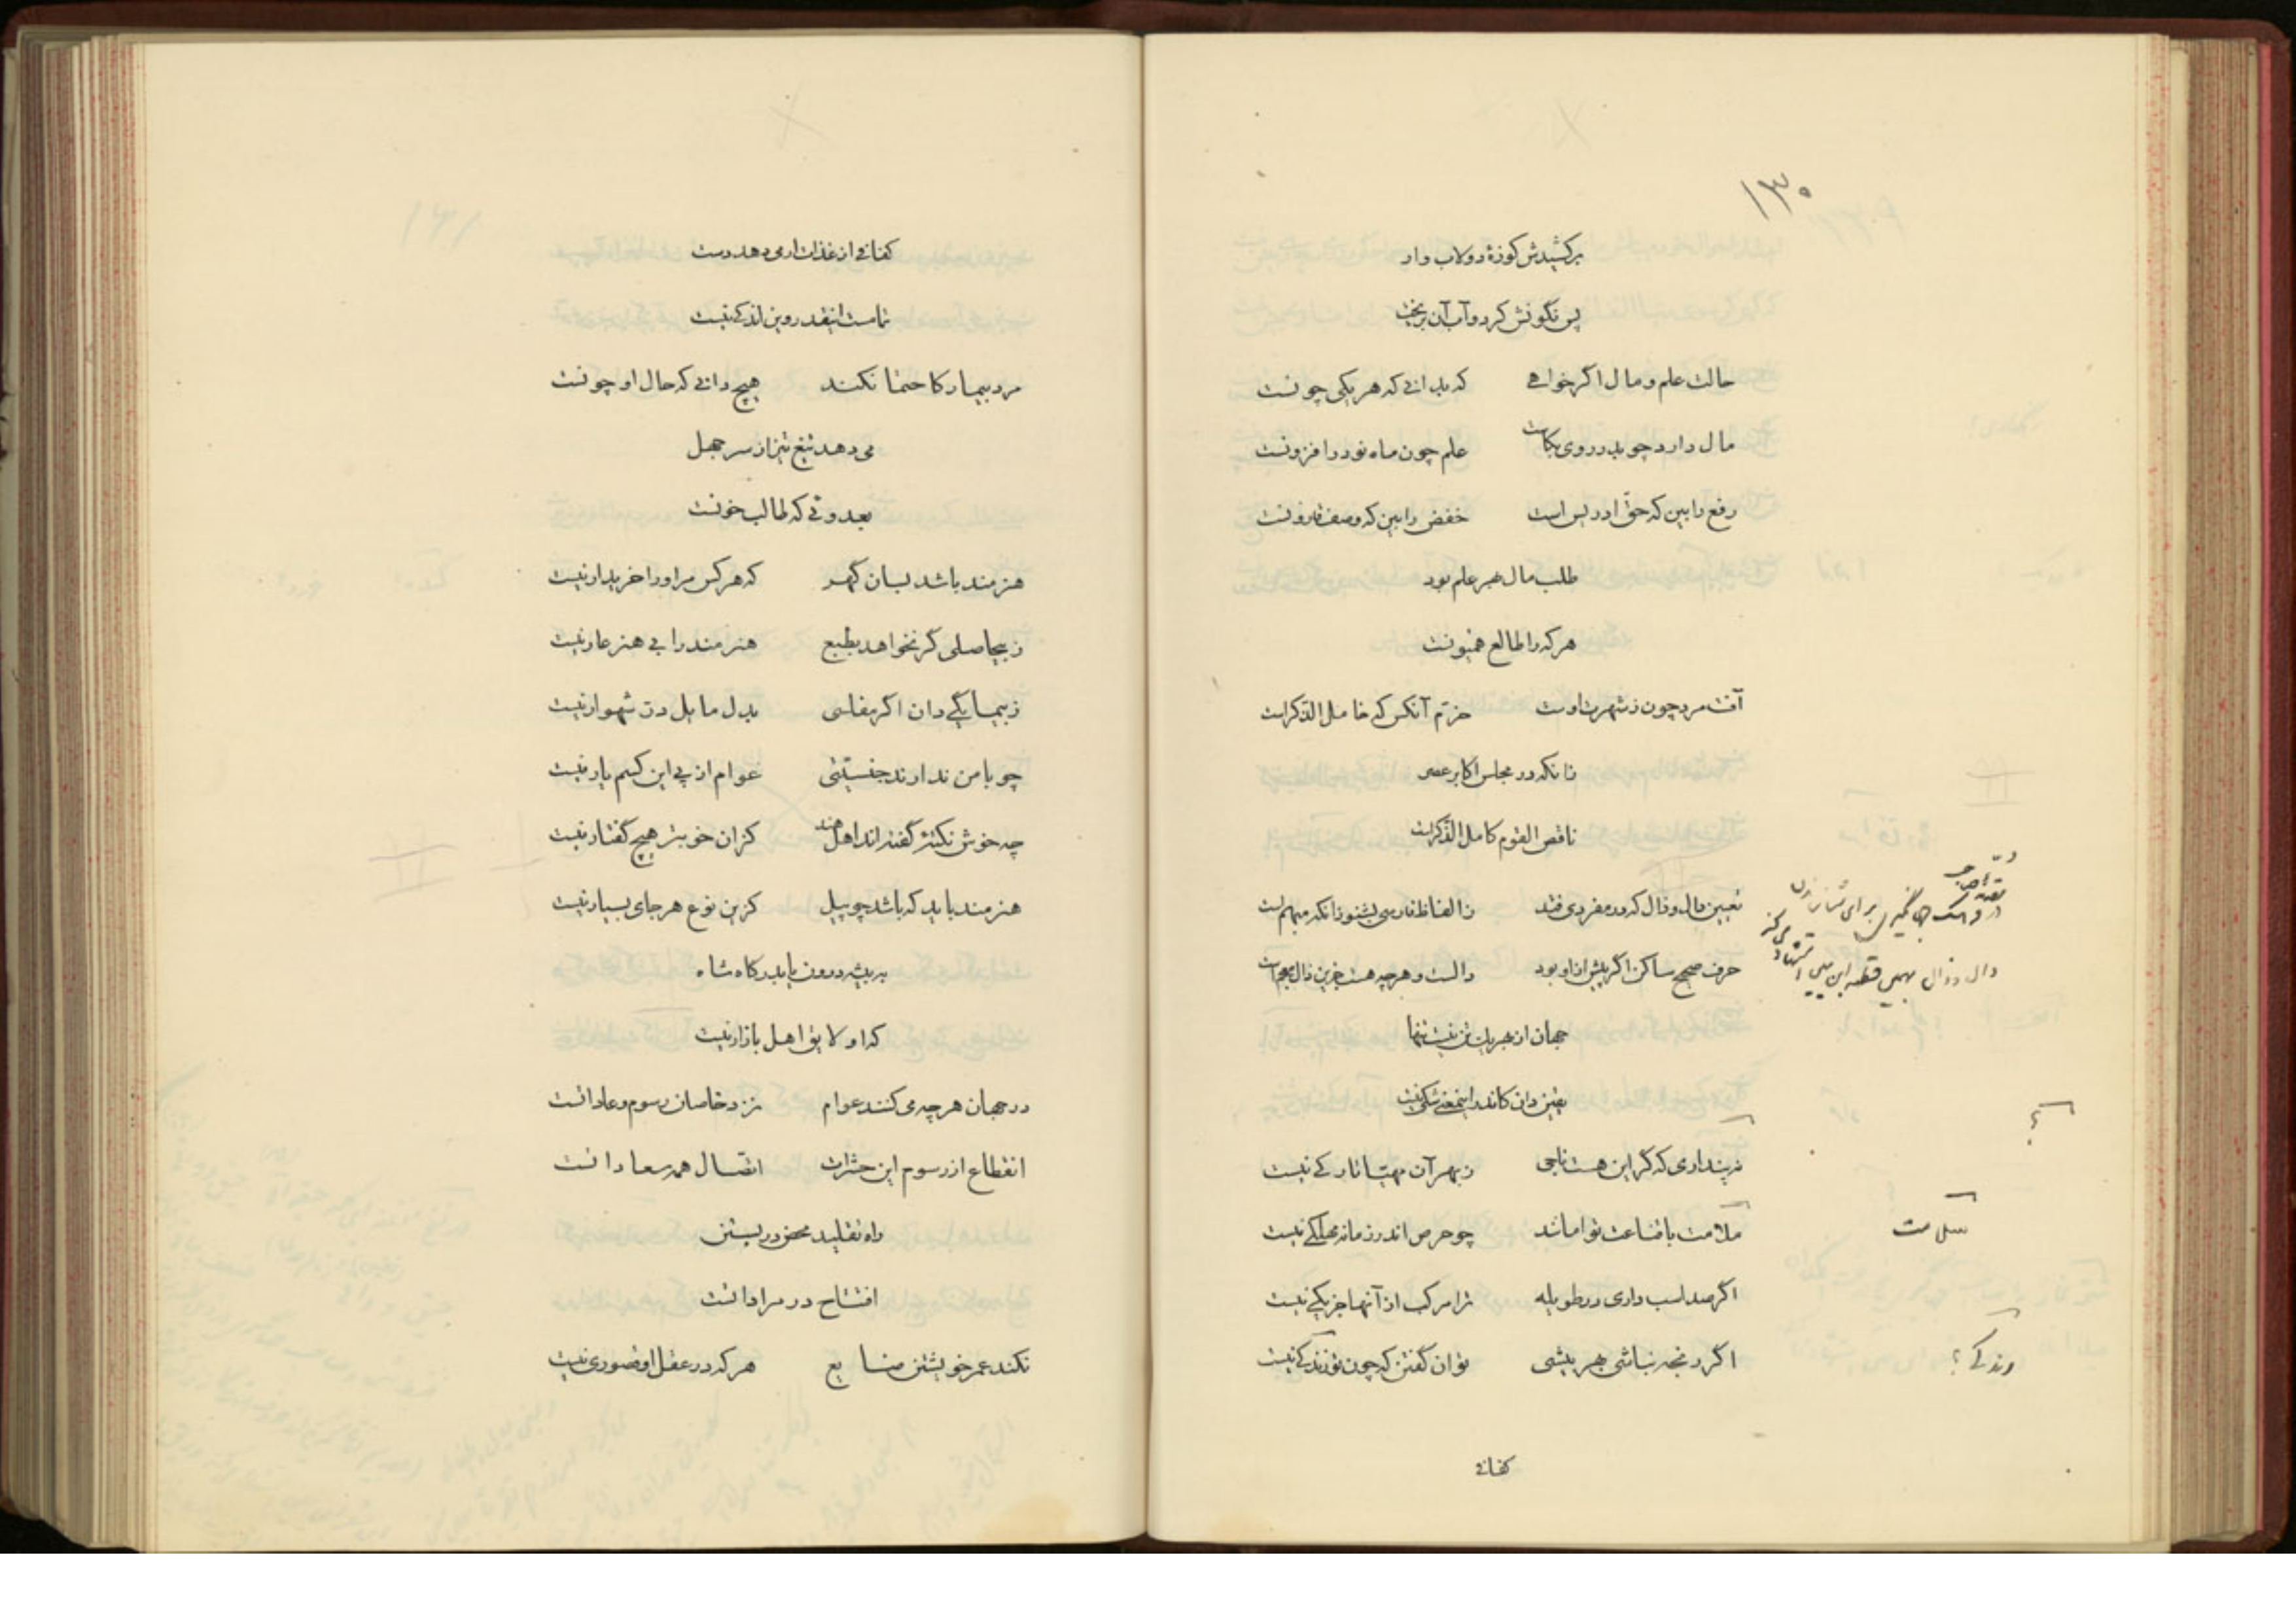 ۱۳۰
برکشیدش کوزهٔ دولاب وار
پس نگونش کرد و آب آن بریخت
حالت علم و مال اگر خواهی که بدانی که هر یکی چونست
مال دارد چو بدر روی بکاست علم چون ماه نو در افزونست
رفع را بین که حق ادریس است خفض را بین که وصف قارونست
طلب مال بهر علم بود
هر که را طالع همیونست
آفت مرد چون ز شهرت اوست خرّم آنکس که خامل الذکر است
زانکه در مجلس اکابر عصر
ناقص القوم کامل الذکر است
تعیین دال و ذال که در مفردی فتد ز الفاظ فارسی بشنو زانکه مبهم است
حرف صحیح ساکن اگر پیش ازو بود دالست و هرچه هست جزین ذال معجم است
برای
دال و ذال بهمین قطعه ابن یمین استشهاد می کند
جهان از بهر یک تن نیست تنها
یقین دان کاندر این معنی شکی نیست
؟
نپنداری که گر این هست ناجی ز بهر آن مهیّا تارکی نیست
ملامت با قناعت توامانند چو حرص اندر زمانه مهلکی نیست
سلامت
اگر صد اسب داری در طویله ترا مرکب از آنها جز یکی نیست
اگر رنجه نباشی بهر بیشی توان گفتن که چون تو زندکی نیست
وندکی ؟
کفافی
کفافی از غذات ار می دهد دست
تمامست اینقدر و این اندکی نیست
مرد بیمار کاحتما نکند هیچ دانی که حال او چونست
می دهد تیغ تیز از سر جهل
بعدوئی که طالب خونست
هنرمند باشد بسان گهر که هر کس مر او را خریدار نیست
ز بیحاصلی گر نخواهد بطبع هنرمند را بی هنر عار نیست
ز بیمایگی دان اگر مفلسی بدل مایل درّ شهوار نیست
چو با من ندارند جنسیّتی عوام از پی این کسم یار نیست
چه خوش نکته گفته اند اهل هند کزان خوبتر هیچ گفتار نیست
هنرمند باید که باشد چو پیل کزین نوع هر جای بسیار نیست
به بیشه درون یا بدرگاه شاه
که او لایق اهل بازار نیست
در جهان هرچه می کنند عوام نزد خاصان رسوم و عادانست
انقطاع از رسوم این حشرات اتصال همه سعادانست
راه تقلید محض در بستن
افتتاح در مرادانست
نکند عمر خویشتن ضایع هر که در عقل او قصوری نیست